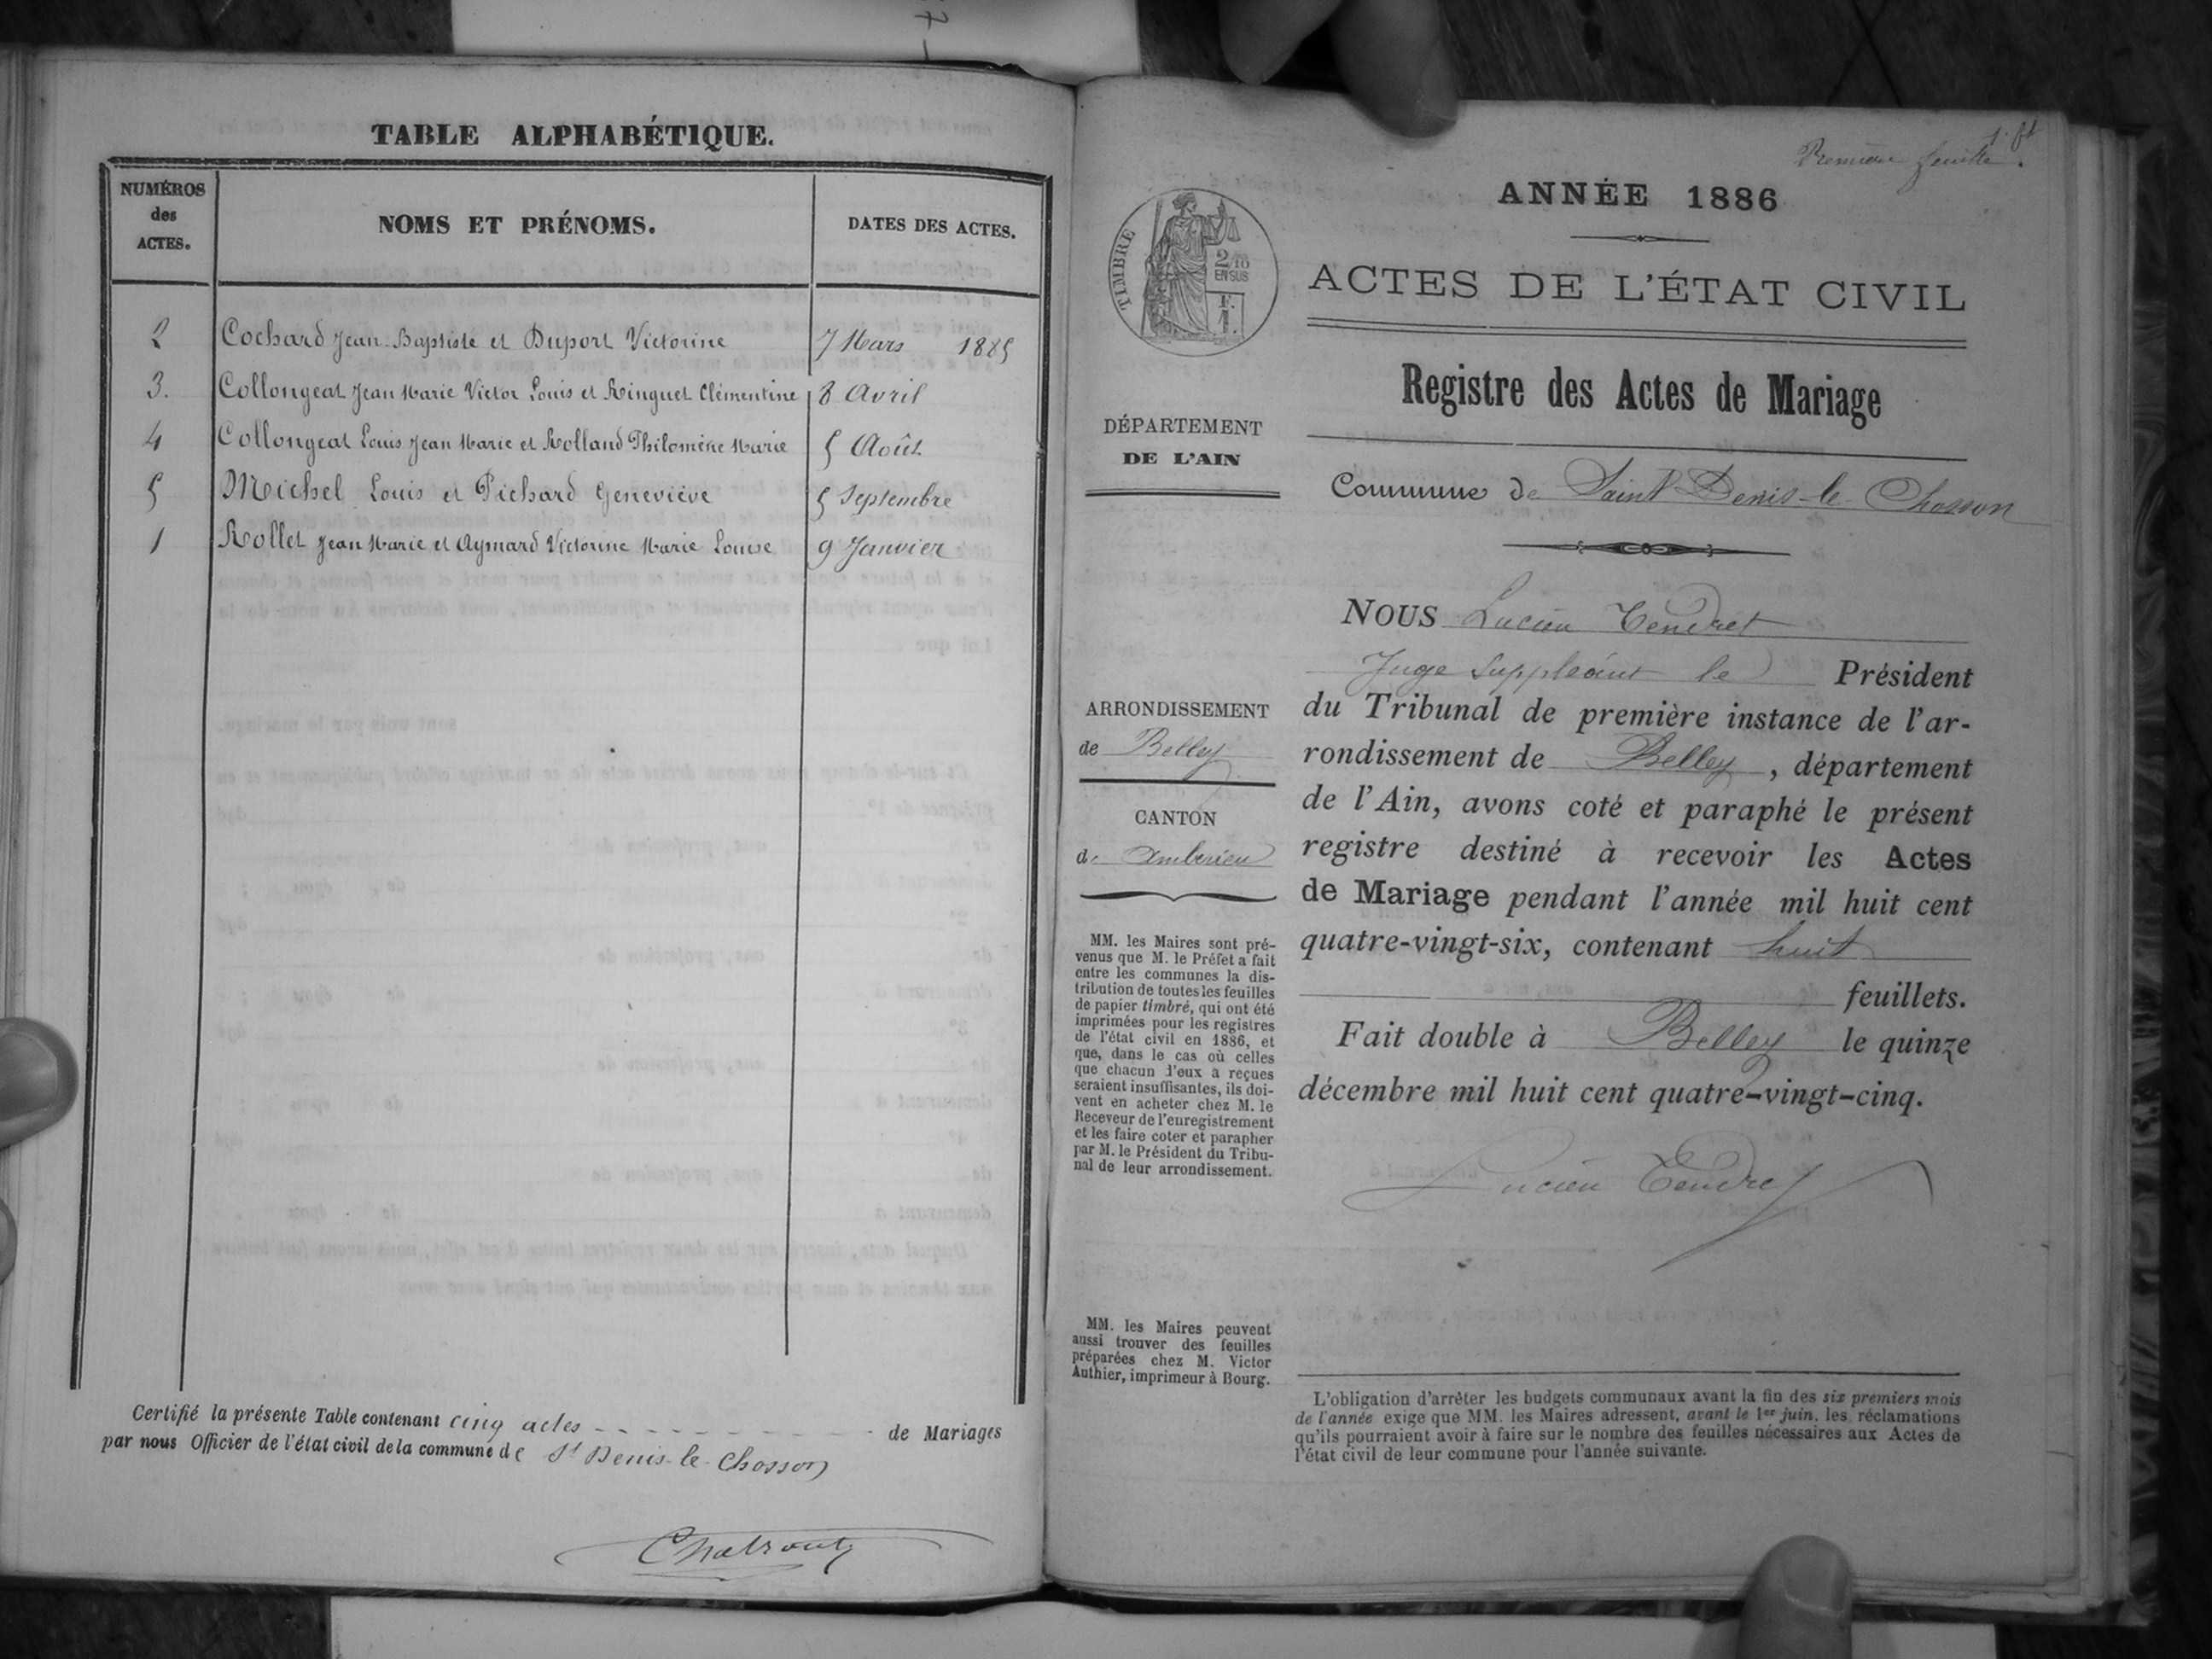 TABLE ALPHABÉTIQUE.
NUMÉROS des ACTES. NOMS ET PRÉNOMS. DATES DES ACTES.
2 Cochard Jean-Baptiste et Duport Victorine 7 Mars 1885
3. Collongeat Jean Marie Victor Louis et Ringuet Clémentine 8 Avril
4 Collongeat Louis Jean Marie et Rolland Philomène Marie 5 Août
5 Michel Louis et Pichard Geneviève 5 Septembre
1 Rollet Jean Marie et Aymard Victorine Marie Louise 9 Janvier
Certifié la présente Table contenant cinq actes de Mariages
par nous Officier de l'état civil de la commune de St Denis-le-Chosson
Première feuille.
ANNÉE 1886
TIMBRE
2/10
EN SUS
ACTES DE L'ÉTAT CIVIL
Registre des Actes de Mariage
DÉPARTEMENT
DE L'AIN
Commune de Saint-Denis-le-Chosson
ARRONDISSEMENT
de Belley
CANTON
de Ambérieu
MM. les Maires sont pré-
venus que M. le Préfet a fait
entre les communes la dis-
tribution de toutes les feuilles
de papier timbré, qui ont été
imprimées pour les registres
de l'état civil en 1886, et
que, dans le cas où celles
que chacun d'eux a reçues
seraient insuffisantes, ils doi-
vent en acheter chez M. le
Receveur de l'enregistrement
et les faire coter et parapher
par M. le Président du Tribu-
nal de leur arrondissement.
MM. les Maires peuvent
aussi trouver des feuilles
préparées chez M. Victor
Authier, imprimeur à Bourg.
NOUS Lucien Tendret
Juge Suppléant le Président
du Tribunal de première instance de l'ar-
rondissement de Belley, département
de l'Ain, avons coté et paraphé le présent
registre destiné à recevoir les Actes
de Mariage pendant l'année mil huit cent
quatre-vingt-six, contenant huit
feuillets.
Fait double à Belley le quinze
décembre mil huit cent quatre-vingt-cinq.
Lucien Tendret
L'obligation d'arrêter les budgets communaux avant la fin des six premiers mois
de l'année exige que MM. les Maires adressent, avant le 1er juin, les réclamations
qu'ils pourraient avoir à faire sur le nombre des feuilles nécessaires aux Actes de
l'état civil de leur commune pour l'année suivante.